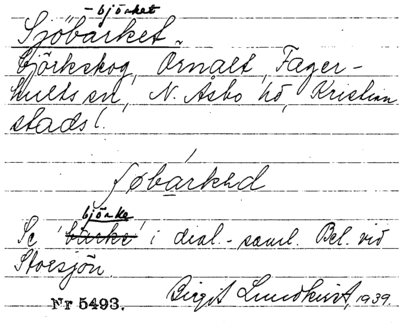 -björket
Sjöbarket
Björkskog, Örnalt, Fager-
hults sn, N. Åsbo hd, Kristian
stads l.
ʃøbarkəd
björke
Se 'barke' i dial.-saml. Bel. vid
Storsjön.
Nr 5493. Birgit Lundkvist, 1939.